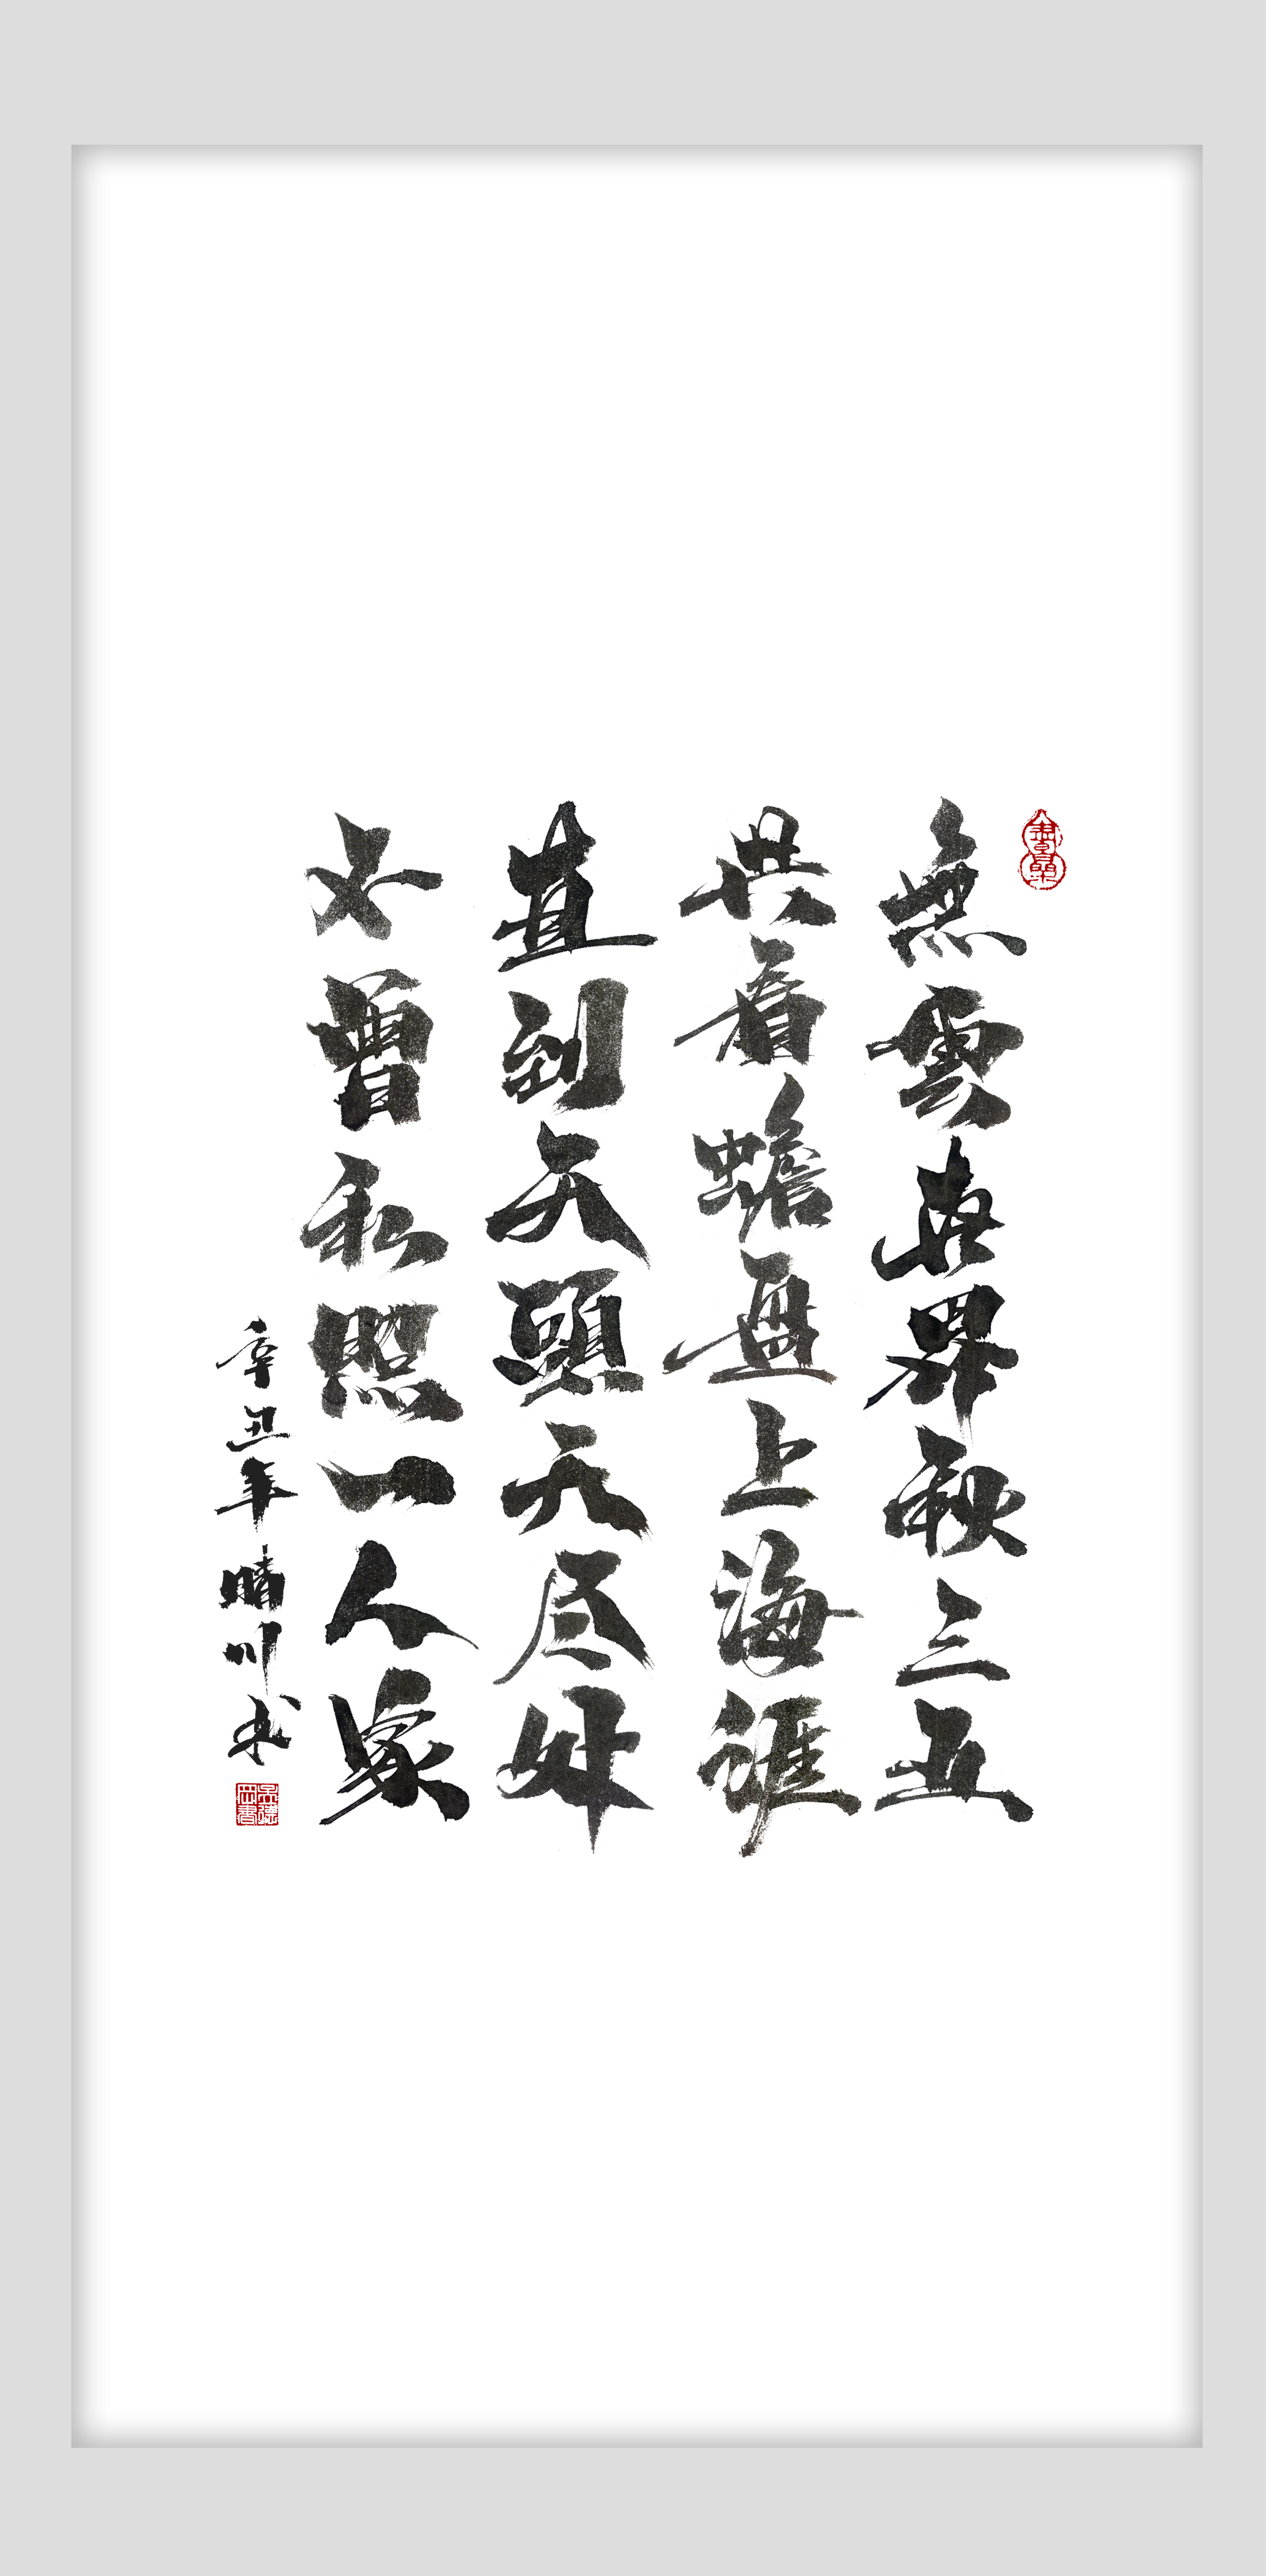 無雲世界秋三五
共看蟾盤上海涯
直到天頭天尽處
不曾私照一人家
辛丑年晴川書